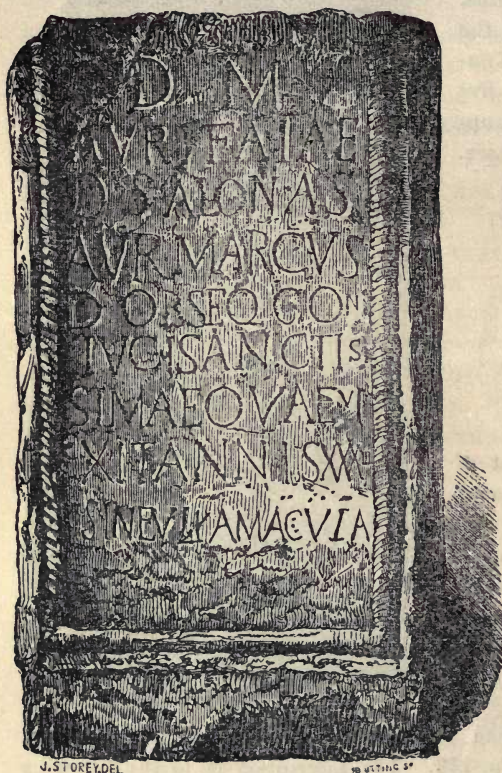 D M
AVR FAIAE
D SALONAS
AVR MARCVS
D OBSEQ CON
IVGI SANCTIS
SIMAE QVAE VI
XIT ANNIS XXX
SINE VLLA MACVLA
J.STOREY.DEL UTTING SC